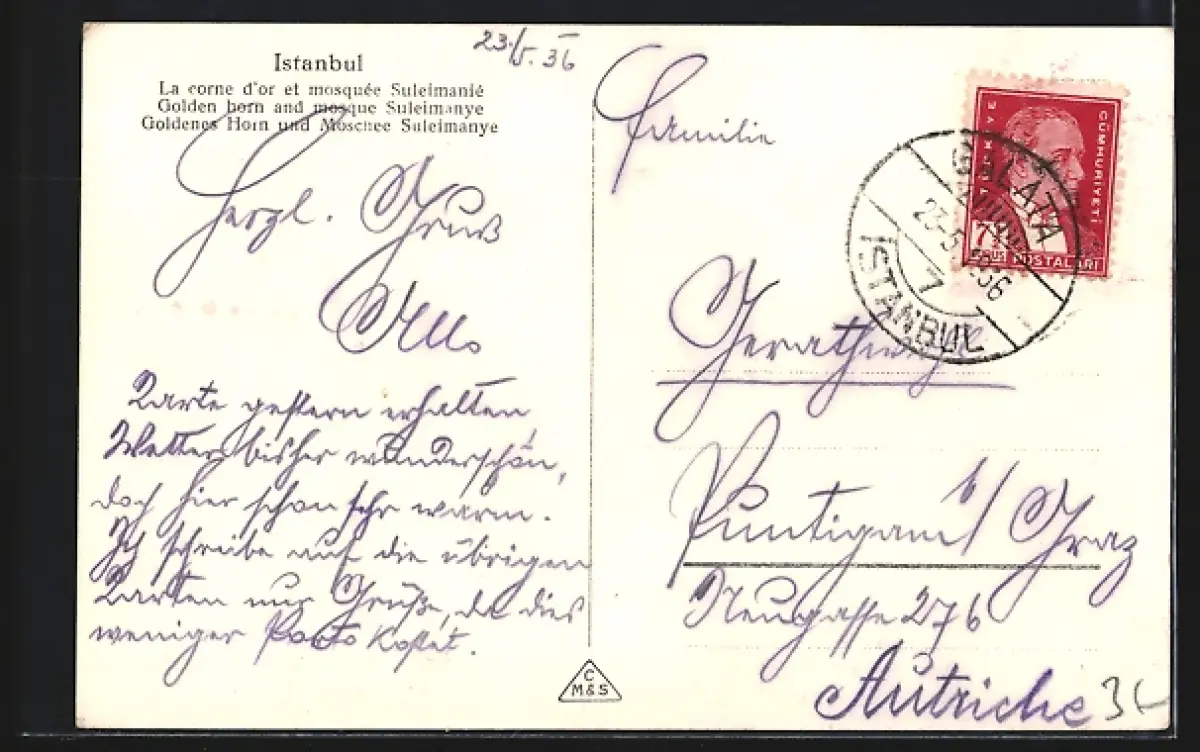 Istanbul
La corne d'or et mosquée Suleimanié
Golden horn and mosque Suleimanye
Goldenes Horn und Moschee Suleimanye
23./5. 36
Herzl. Gruß
Karte gestern erhalten,
Wetter bisher wunderschön,
doch hier schon sehr warm.
Ich schreibe auf die übrigen
Karten nur Grüße, da dies
weniger Porto kostet.
C
M&S
Familie
Puntigam b/ Graz
Neugasse 276
Autriche
CUMHURİYETİ
POSTALARI
GALATA
23-5-36
7
ISTANBUL